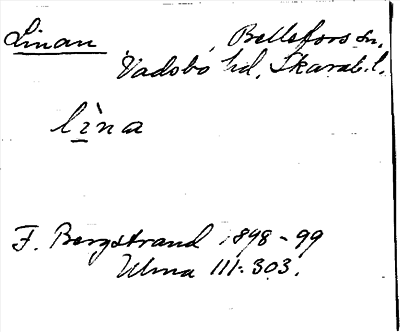 Linan, Bellefors sn.
Vadsbo hd, Skarab. l.
lìna
F. Bergstrand 1898-99
Ulma 111:303.